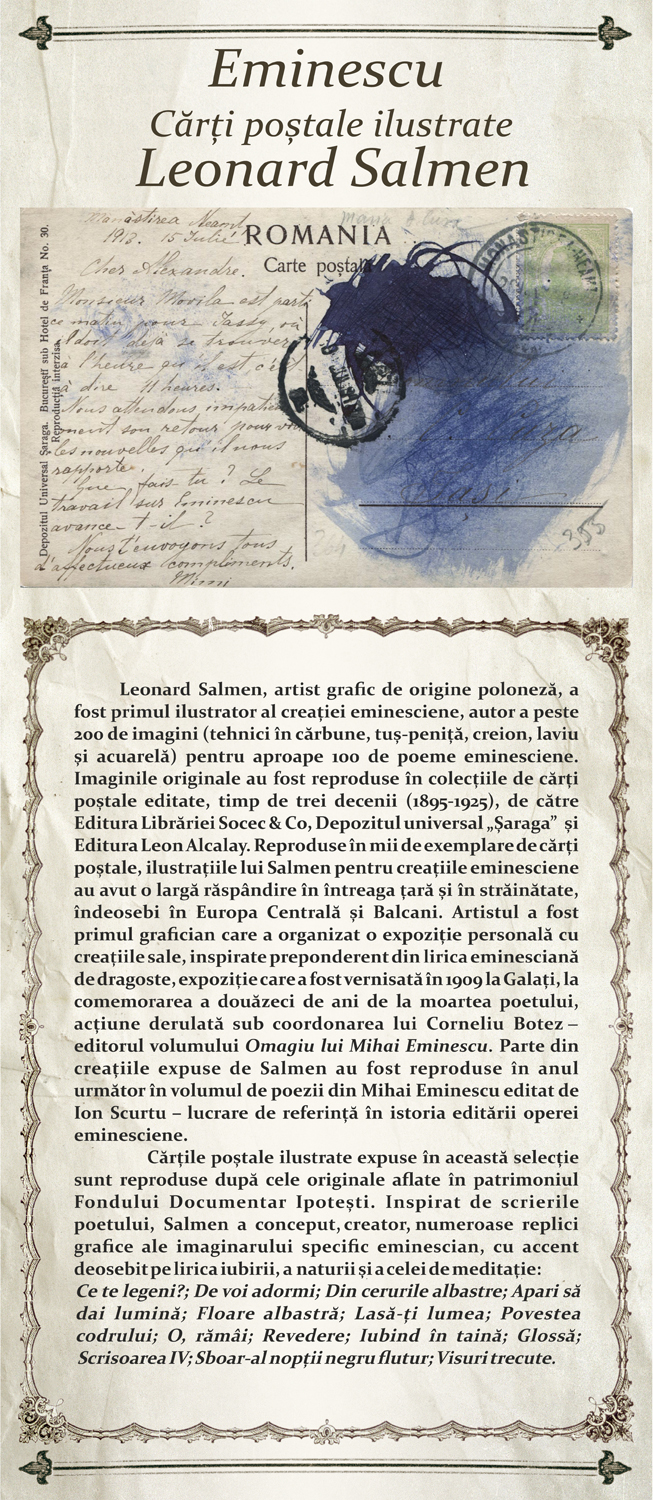 Eminescu
Cărți poștale ilustrate
Leonard Salmen
Mânăstirea Neamț
1913. 15 Iulie
ROMANIA
Carte poștală
Cher Alexandre.
Monsieur Movila est parti
ce matin pour Jassy, où
il doit déjà se trouver
à l'heure qu'il est, c'est
à dire 11 heures.
Nous attendons impatiem
ment son retour pour
les nouvelles qu'il nous
rapporte.
Que fais tu? Le
travail sur Eminescu
avance-t-il?
Nous t'envoyons tous
d'affectueux compliments.
Mimi
Depozitul Universal Șaraga. București sub Hotel de Franța No. 30.
Reproducția interzisă.
Iași
Leonard Salmen, artist grafic de origine poloneză, a
fost primul ilustrator al creației eminesciene, autor a peste
200 de imagini (tehnici în cărbune, tuș-peniță, creion, laviu
și acuarelă) pentru aproape 100 de poeme eminesciene.
Imaginile originale au fost reproduse în colecțiile de cărți
poștale editate, timp de trei decenii (1895-1925), de către
Editura Librăriei Socec & Co, Depozitul universal „Șaraga” și
Editura Leon Alcalay. Reproduse în mii de exemplare de cărți
poștale, ilustrațiile lui Salmen pentru creațiile eminesciene
au avut o largă răspândire în întreaga țară și în străinătate,
îndeosebi în Europa Centrală și Balcani. Artistul a fost
primul grafician care a organizat o expoziție personală cu
creațiile sale, inspirate preponderent din lirica eminesciană
de dragoste, expoziție care a fost vernisată în 1909 la Galați, la
comemorarea a douăzeci de ani de la moartea poetului,
acțiune derulată sub coordonarea lui Corneliu Botez –
editorul volumului Omagiu lui Mihai Eminescu. Parte din
creațiile expuse de Salmen au fost reproduse în anul
următor în volumul de poezii din Mihai Eminescu editat de
Ion Scurtu – lucrare de referință în istoria editării operei
eminesciene.
Cărțile poștale ilustrate expuse în această selecție
sunt reproduse după cele originale aflate în patrimoniul
Fondului Documentar Ipotești. Inspirat de scrierile
poetului, Salmen a conceput, creator, numeroase replici
grafice ale imaginarului specific eminescian, cu accent
deosebit pe lirica iubirii, a naturii și a celei de meditație:
Ce te legeni?; De voi adormi; Din cerurile albastre; Apari să
dai lumină; Floare albastră; Lasă-ți lumea; Povestea
codrului; O, rămâi; Revedere; Iubind în taină; Glossă;
Scrisoarea IV; Sboar-al nopții negru flutur; Visuri trecute.